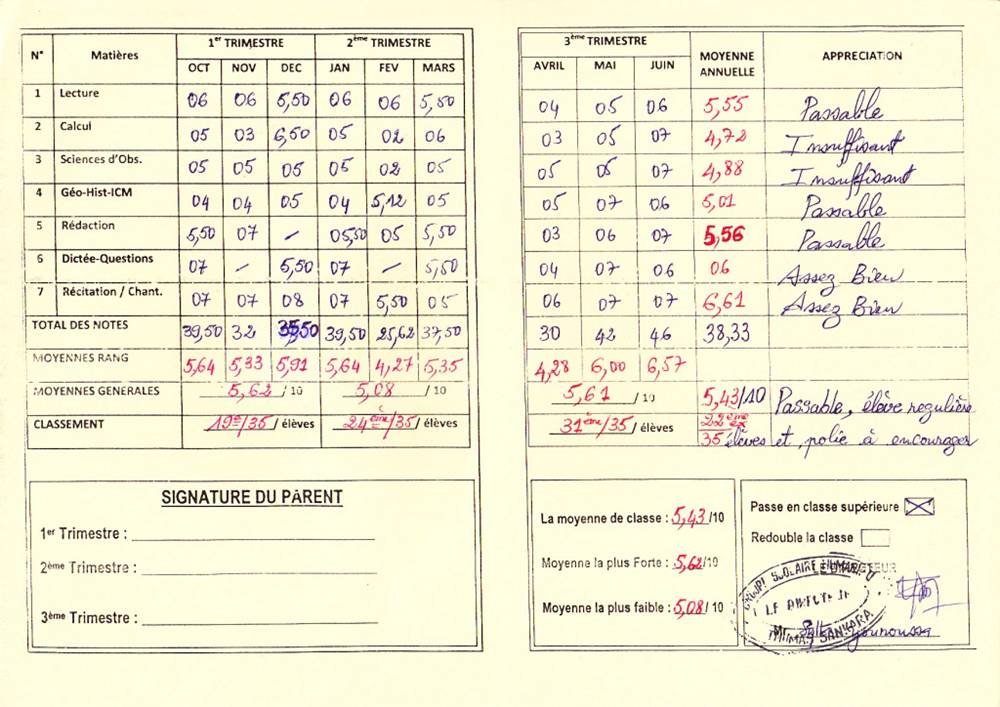 N° Matières 1er TRIMESTRE 2ème TRIMESTRE
OCT NOV DEC JAN FEV MARS
1 Lecture 06 06 5,50 06 06 5,50
2 Calcul 05 03 6,50 05 02 06
3 Sciences d'Obs. 05 05 05 05 02 05
4 Géo-Hist-ICM 04 04 05 04 5,12 05
5 Rédaction 5,50 07 – 05,50 05 5,50
6 Dictée-Questions 07 – 5,50 07 – 5,50
7 Récitation / Chant. 07 07 08 07 5,50 05
TOTAL DES NOTES 39,50 32 35,50 39,50 25,62 37,50
MOYENNES RANG 5,64 5,33 5,91 5,64 4,27 5,35
MOYENNES GENERALES 5,62 / 10 5,08 / 10
CLASSEMENT 19e/35 / élèves 24ème/35 / élèves
SIGNATURE DU PARENT
1er Trimestre :
2ème Trimestre :
3ème Trimestre :
3ème TRIMESTRE MOYENNE ANNUELLE APPRECIATION
AVRIL MAI JUIN
04 05 06 5,55 Passable
03 05 07 4,72 Insuffisant
05 05 07 4,88 Insuffisant
05 07 06 5,01 Passable
03 06 07 5,56 Passable
04 07 06 06 Assez Bien
06 07 07 6,61 Assez Bien
30 42 46 38,33
4,28 6,00 6,57
5,61 / 10 5,43/10 Passable, élève regulière
31ème/35 / élèves 22ème 35 élèves et, polie à encourager
La moyenne de classe : 5,43/10
Moyenne la plus Forte : 5,62/10
Moyenne la plus faible : 5,08/10
Passe en classe supérieure
Redouble la classe
LE DIRECTEUR